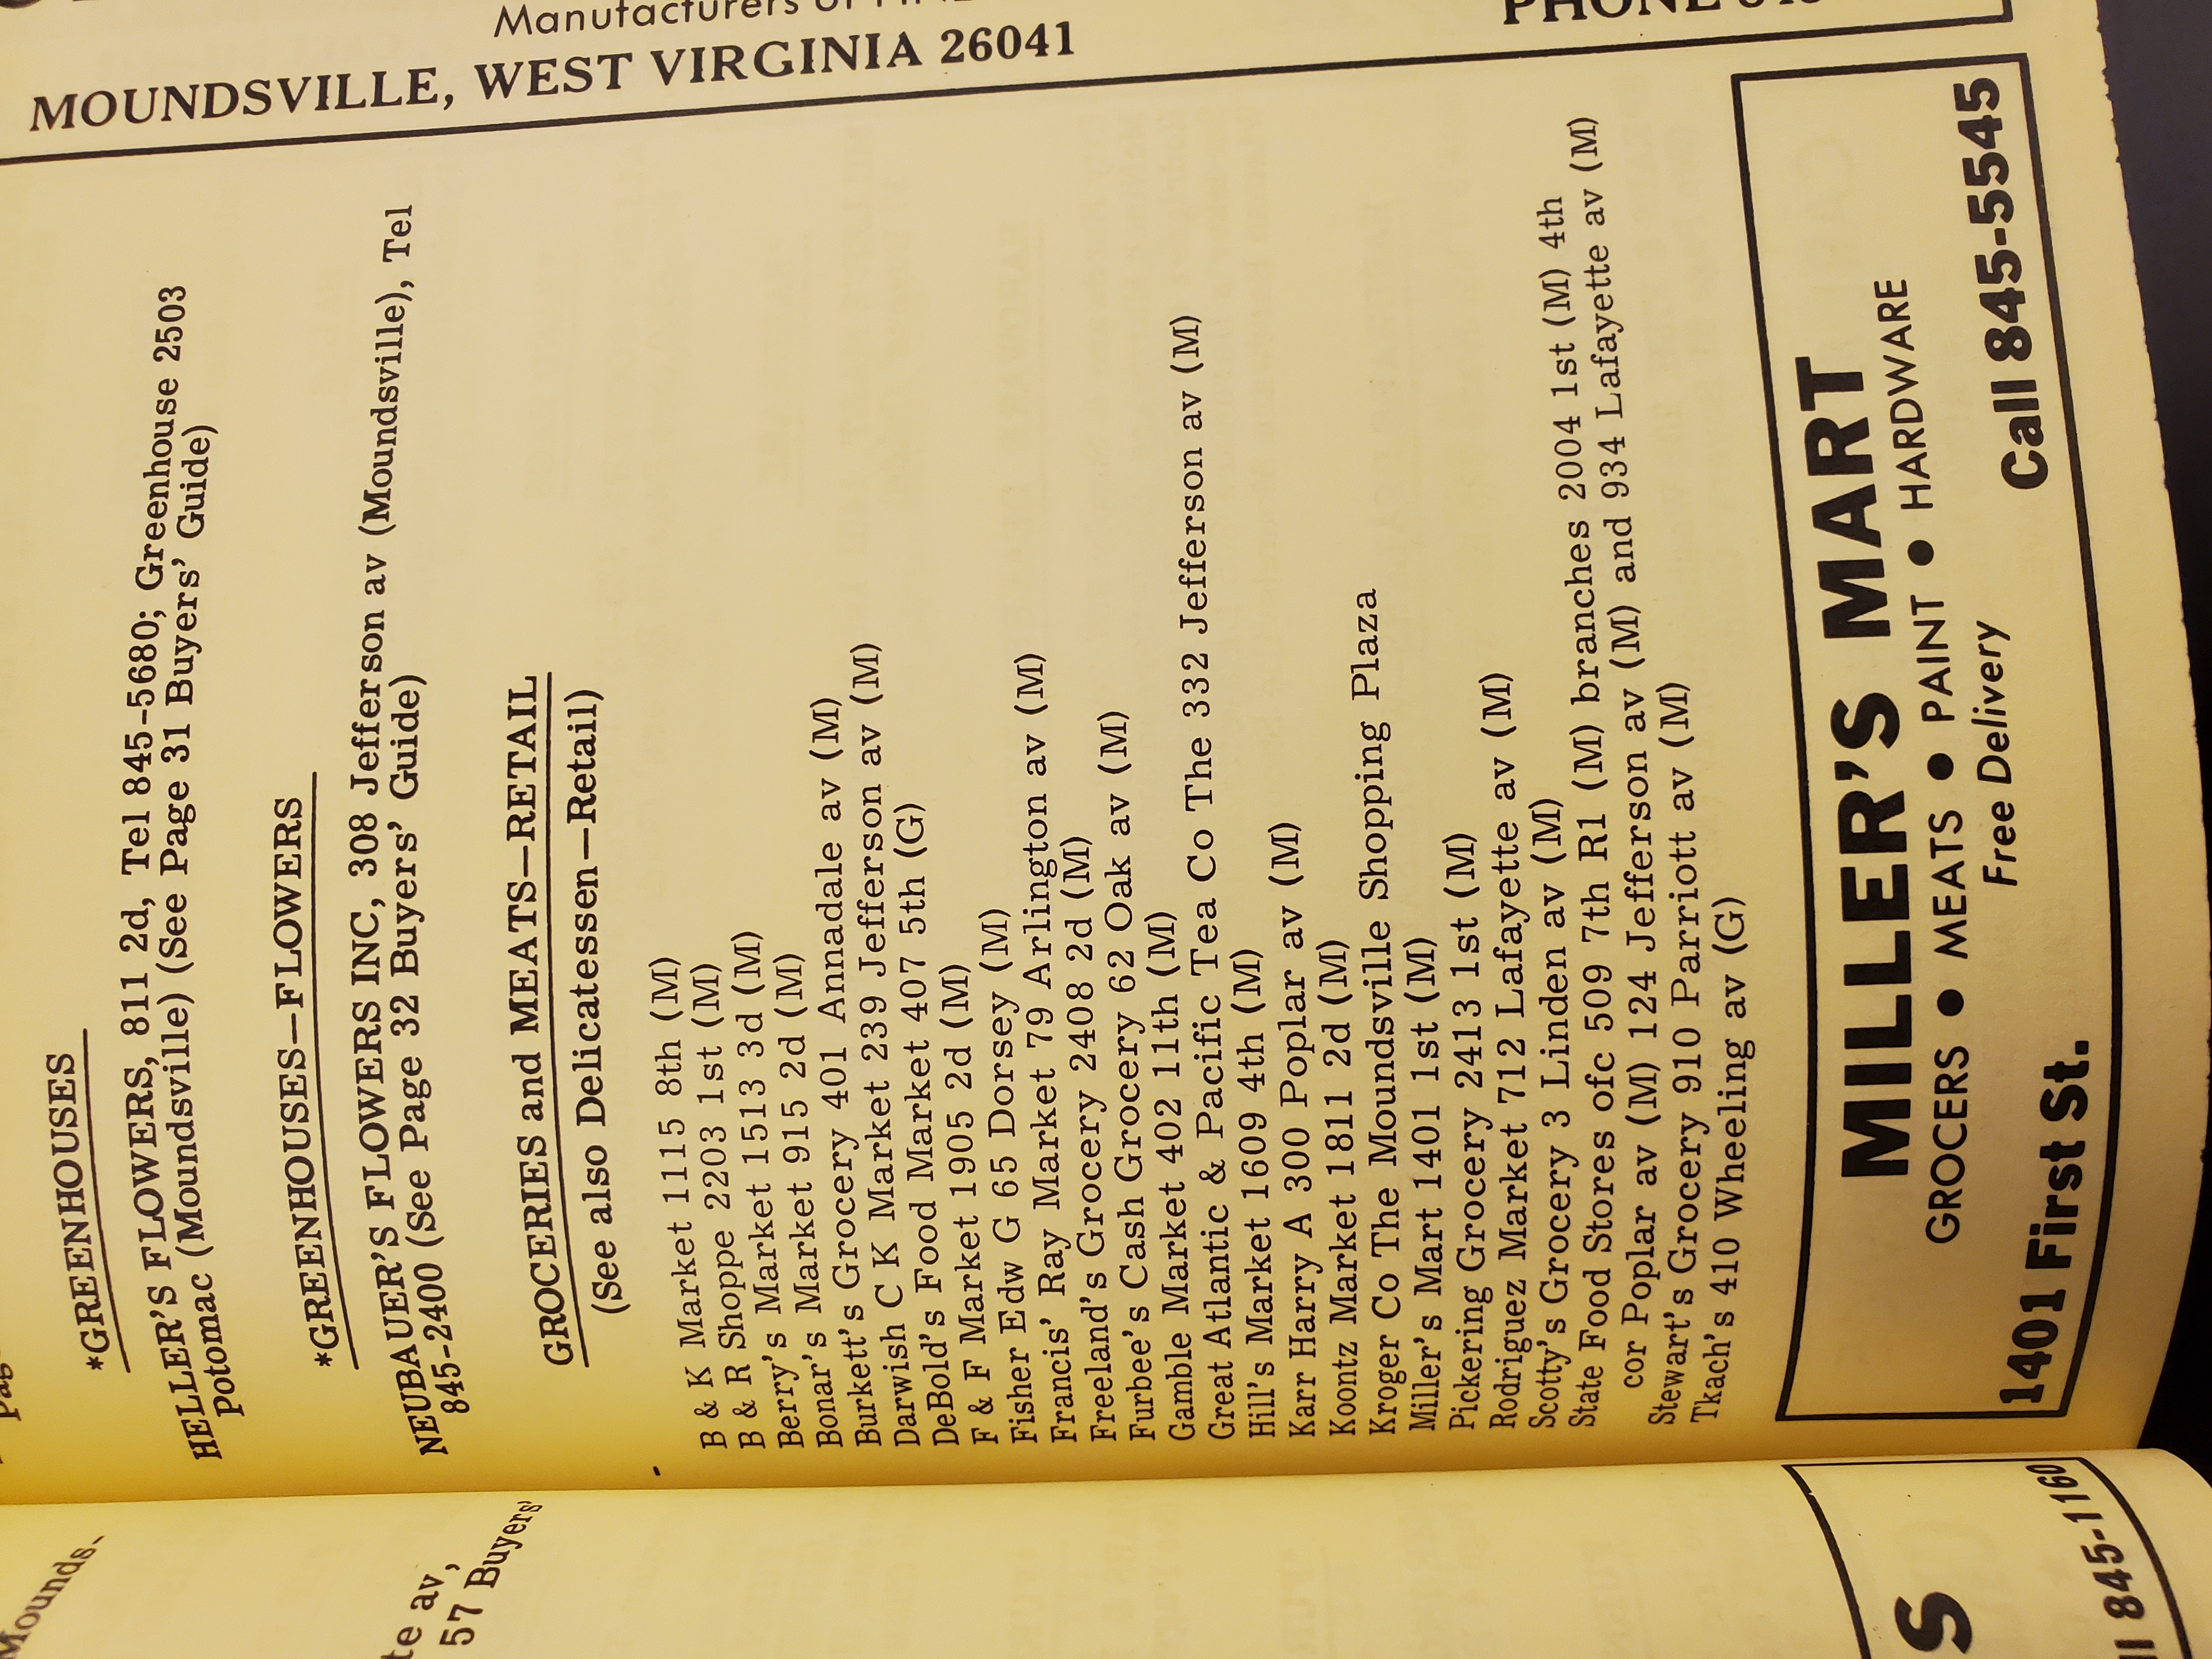 Manufacturers of
MOUNDSVILLE, WEST VIRGINIA 26041
PHONE
*GREENHOUSES
HELLER'S FLOWERS, 811 2d, Tel 845-5680; Greenhouse 2503
Potomac (Moundsville) (See Page 31 Buyers' Guide)
*GREENHOUSES—FLOWERS
NEUBAUER'S FLOWERS INC, 308 Jefferson av (Moundsville), Tel
845-2400 (See Page 32 Buyers' Guide)
GROCERIES and MEATS—RETAIL
(See also Delicatessen—Retail)
B & K Market 1115 8th (M)
B & R Shoppe 2203 1st (M)
Berry's Market 1513 3d (M)
Bonar's Market 915 2d (M)
Burkett's Grocery 401 Annadale av (M)
Darwish C K Market 239 Jefferson av (M)
DeBold's Food Market 407 5th (G)
F & F Market 1905 2d (M)
Fisher Edw G 65 Dorsey (M)
Francis' Ray Market 79 Arlington av (M)
Freeland's Grocery 2408 2d (M)
Furbee's Cash Grocery 62 Oak av (M)
Gamble Market 402 11th (M)
Great Atlantic & Pacific Tea Co The 332 Jefferson av (M)
Hill's Market 1609 4th (M)
Karr Harry A 300 Poplar av (M)
Koontz Market 1811 2d (M)
Kroger Co The Moundsville Shopping Plaza
Miller's Mart 1401 1st (M)
Pickering Grocery 2413 1st (M)
Rodriguez Market 712 Lafayette av (M)
Scotty's Grocery 3 Linden av (M)
State Food Stores ofc 509 7th R1 (M) branches 2004 1st (M) 4th
cor Poplar av (M) 124 Jefferson av (M) and 934 Lafayette av (M)
Stewart's Grocery 910 Parriott av (M)
Tkach's 410 Wheeling av (G)
MILLER'S MART
GROCERS ● MEATS ● PAINT ● HARDWARE
Free Delivery
1401 First St. Call 845-5545
Mounds-
av,
57 Buyers'
S
845-1160